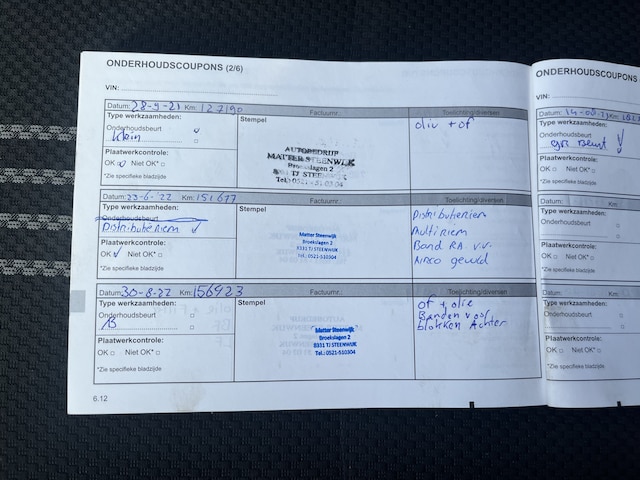 ONDERHOUDSCOUPONS (2/6)
VIN:
Datum: 28-9-21 Km: 127190 Factuurnr.: Toelichting/diversen
Type werkzaamheden: Stempel
Onderhoudsbeurt
Klein
Plaatwerkcontrole:
OK Niet OK*
*Zie specifieke bladzijde
AUTOBEDRIJF
MATTER STEENWIJK
Broekslagen 2
8331 TJ STEENWIJK
Tel.: 0521-510304
olie + of
Datum: 23-6-'22 Km: 151677 Factuurnr.: Toelichting/diversen
Type werkzaamheden: Stempel
Onderhoudsbeurt
Distributieriem
Plaatwerkcontrole:
OK Niet OK*
*Zie specifieke bladzijde
Matter Steenwijk
Broekslagen 2
8331 TJ STEENWIJK
Tel.: 0521-510304
Distributieriem
Multiriem
Band RA v.v.
Airco gevuld
Datum: 30-8-22 Km: 156923 Factuurnr.: Toelichting/diversen
Type werkzaamheden: Stempel
Onderhoudsbeurt
Plaatwerkcontrole:
OK Niet OK*
*Zie specifieke bladzijde
Matter Steenwijk
Broekslagen 2
8331 TJ STEENWIJK
Tel.: 0521-510304
of + olie
Banden voor
blokken Achter
6.12
ONDERHOUDSCOUPONS
VIN:
Datum: Km:
Type werkzaamheden:
Onderhoudsbeurt
gr. Beurt
Plaatwerkcontrole:
OK Niet OK*
*Zie specifieke bladzijde
Datum: Km:
Type werkzaamheden:
Onderhoudsbeurt
Plaatwerkcontrole:
OK Niet OK*
*Zie specifieke bladzijde
Datum:
Type werkzaamheden:
Onderhoudsbeurt
Plaatwerkcontrole:
OK Niet OK*
*Zie specifieke bladzijde